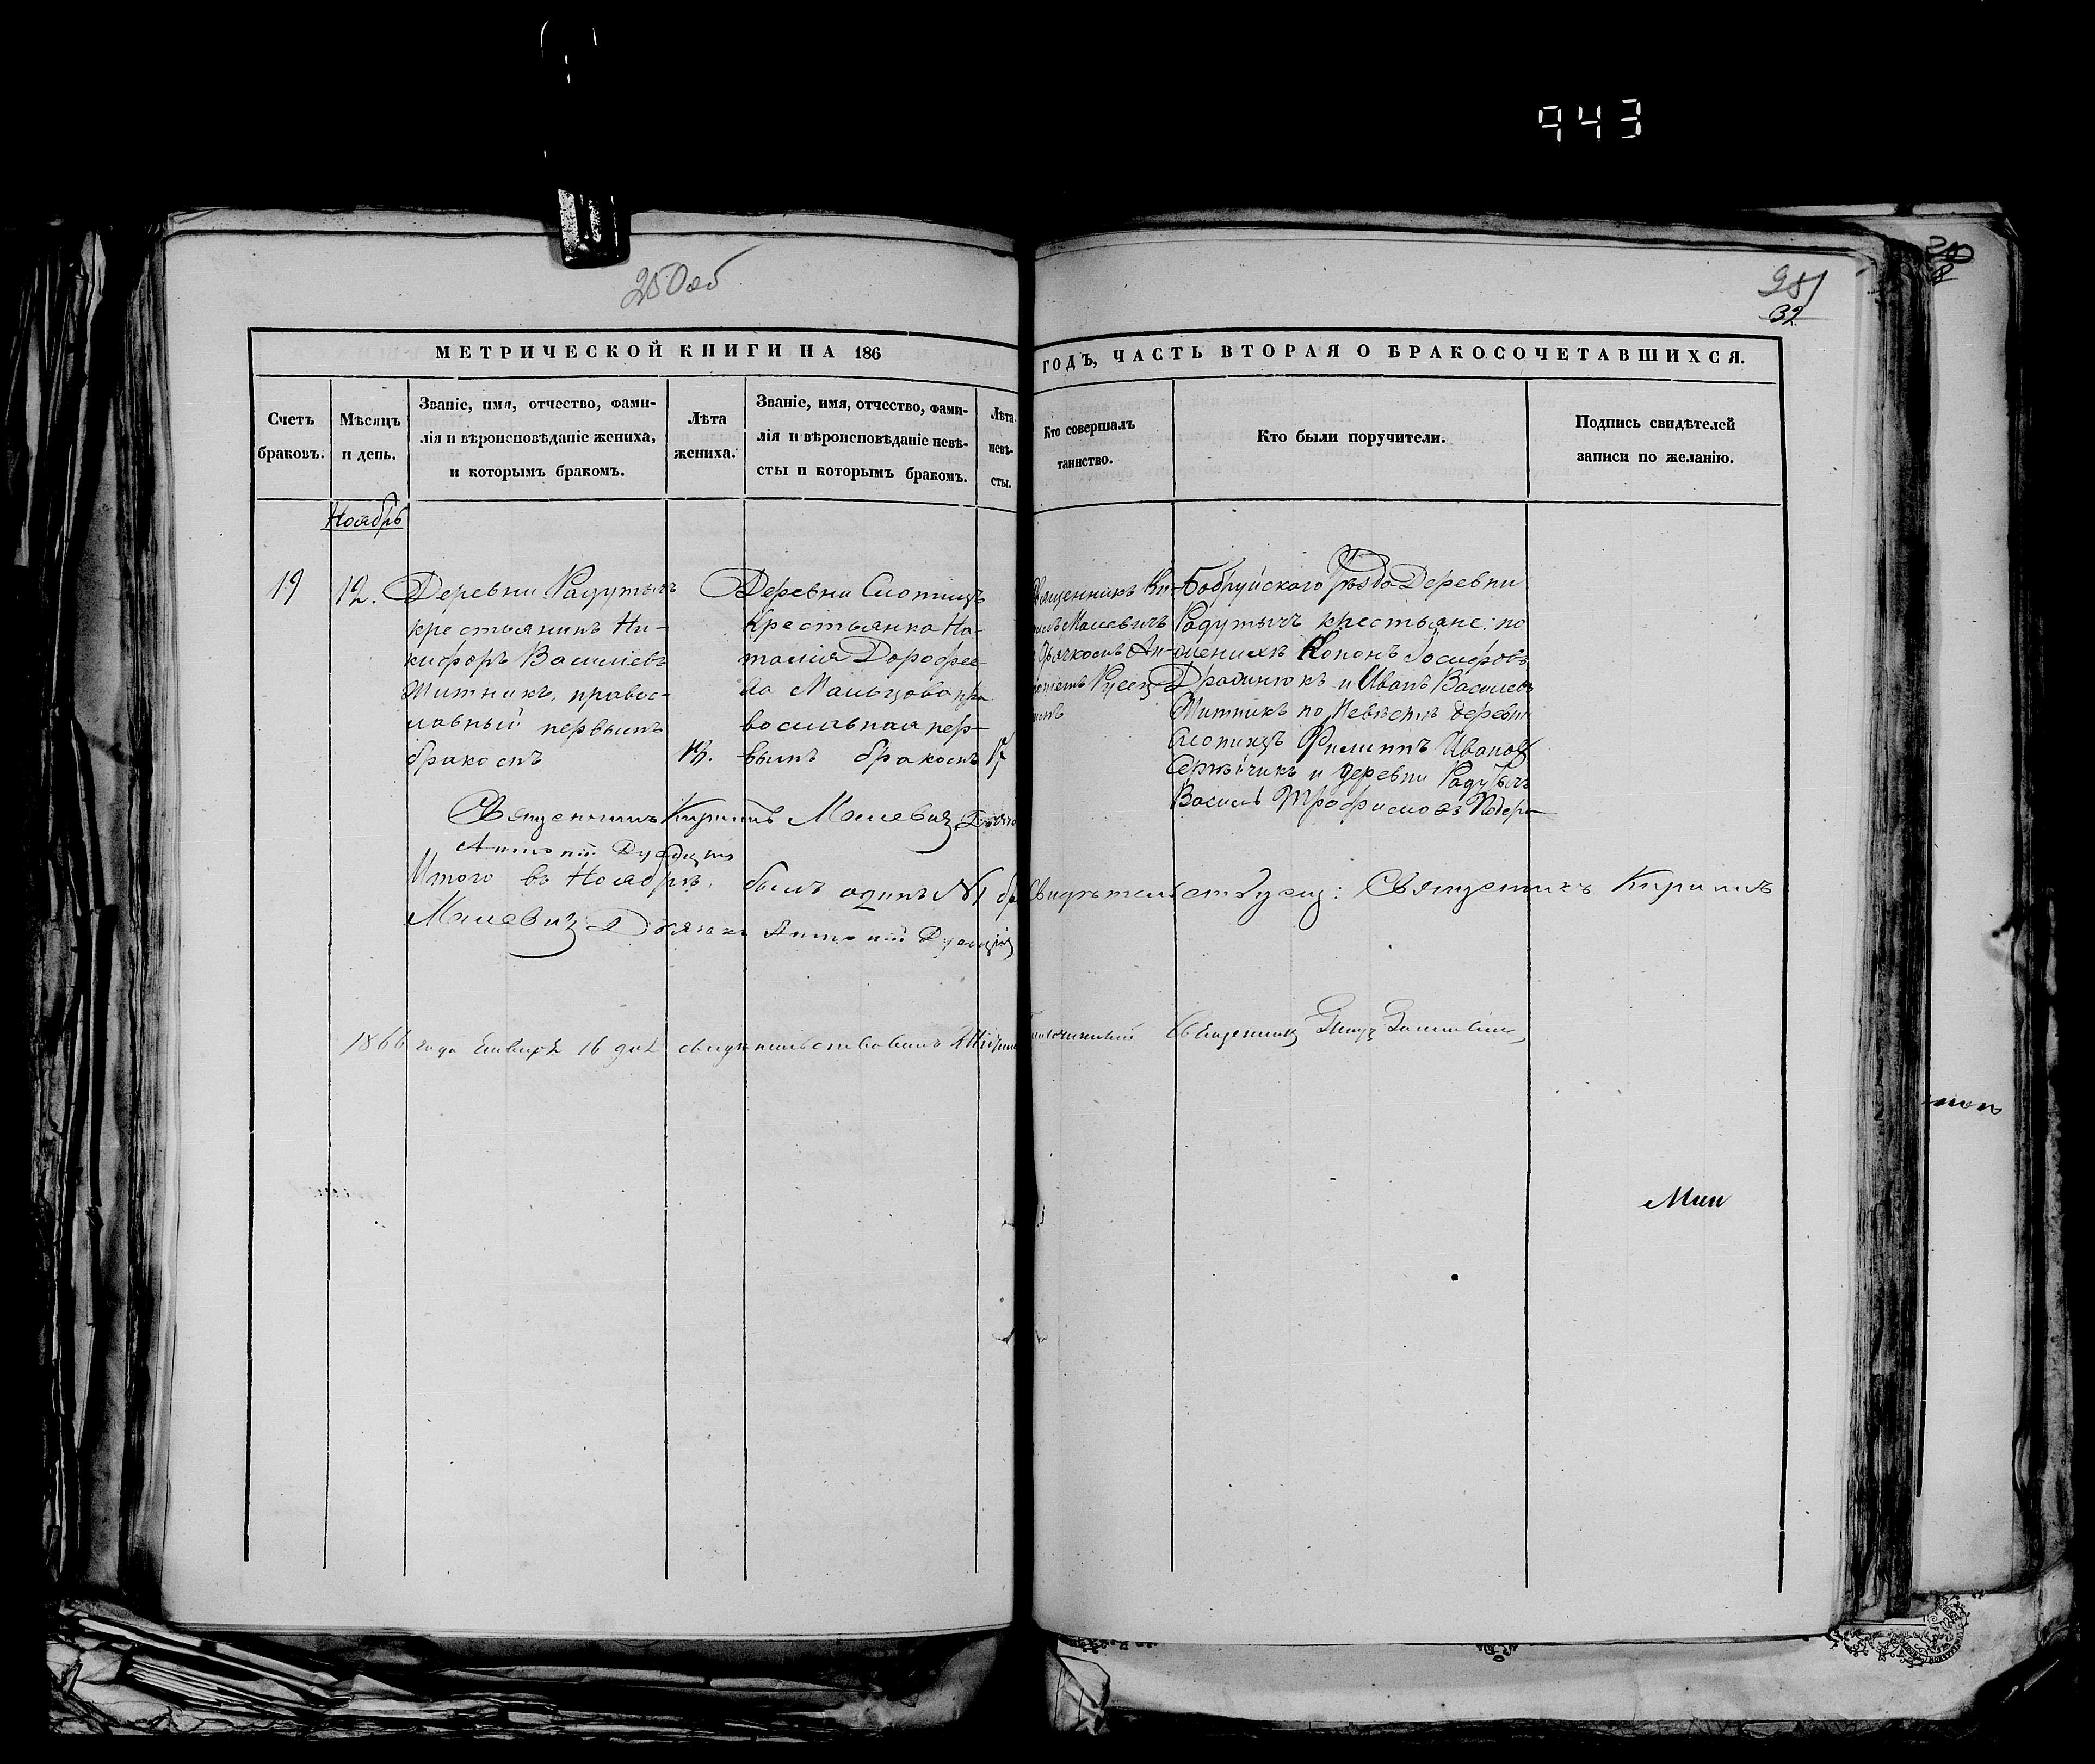 943
250об
251
32
МЕТРИЧЕСКОЙ КНИГИ НА 186
ГОДЪ, ЧАСТЬ ВТОРАЯ О БРАКОСОЧЕТАВШИХСЯ.
Счетъ
браковъ.
Мѣсяцъ
и день.
Званіе, имя, отчество, фами-
лія и вѣроисповѣданіе жениха,
и которымъ бракомъ.
Лѣта
жениха.
Званіе, имя, отчество, фами-
лія и вѣроисповѣданіе невѣ-
сты и которымъ бракомъ.
Лѣта
невѣ-
сты.
Кто совершалъ
таинство.
Кто были поручители.
Подпись свидѣтелей
записи по желанію.
Ноябрь
19
12.
Деревни Радутычъ
крестьянинъ Ни-
кифоръ Василіевъ
Житникъ, правос-
лавный первымъ
бракомъ
19.
Деревни Слопищъ
Крестьянка На-
талія Дорофее-
ва Мальцова пра
вославная пер-
вымъ бракомъ
17
Священникъ Ки-
Малевичъ
Дьячкомъ Ан-
Бобруйского Уѣзда Деревни
Радутычъ крестьяне: по
женихѣ Кононъ Іосифовъ
и Иванъ Василевъ
Житникъ по Невѣстѣ деревни
Филиппъ Ивановъ
и деревни Радутычъ
Василь Трофимовъ
Священникъ Кириллъ Малевичъ
Антоній
Итого въ Ноябрѣ былъ одинъ №1 бра
Свидѣтельствуемъ: Священникъ Кириллъ
Малевичъ Дьячекъ Антоній
1866 года Января 16 дня свидѣтельствовалъ
Священникъ
Мин